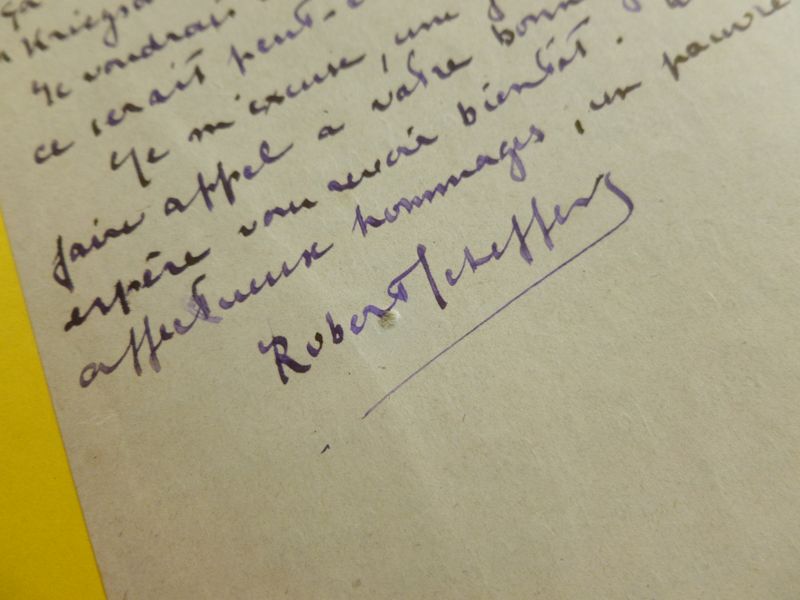 Kriegs
Je voudrais
ce serait peut-
Je m'excuse, une
faire appel à votre bonn
espère vous revoir bientôt.
affectueux hommages, un pauvre
Robert Scheffer